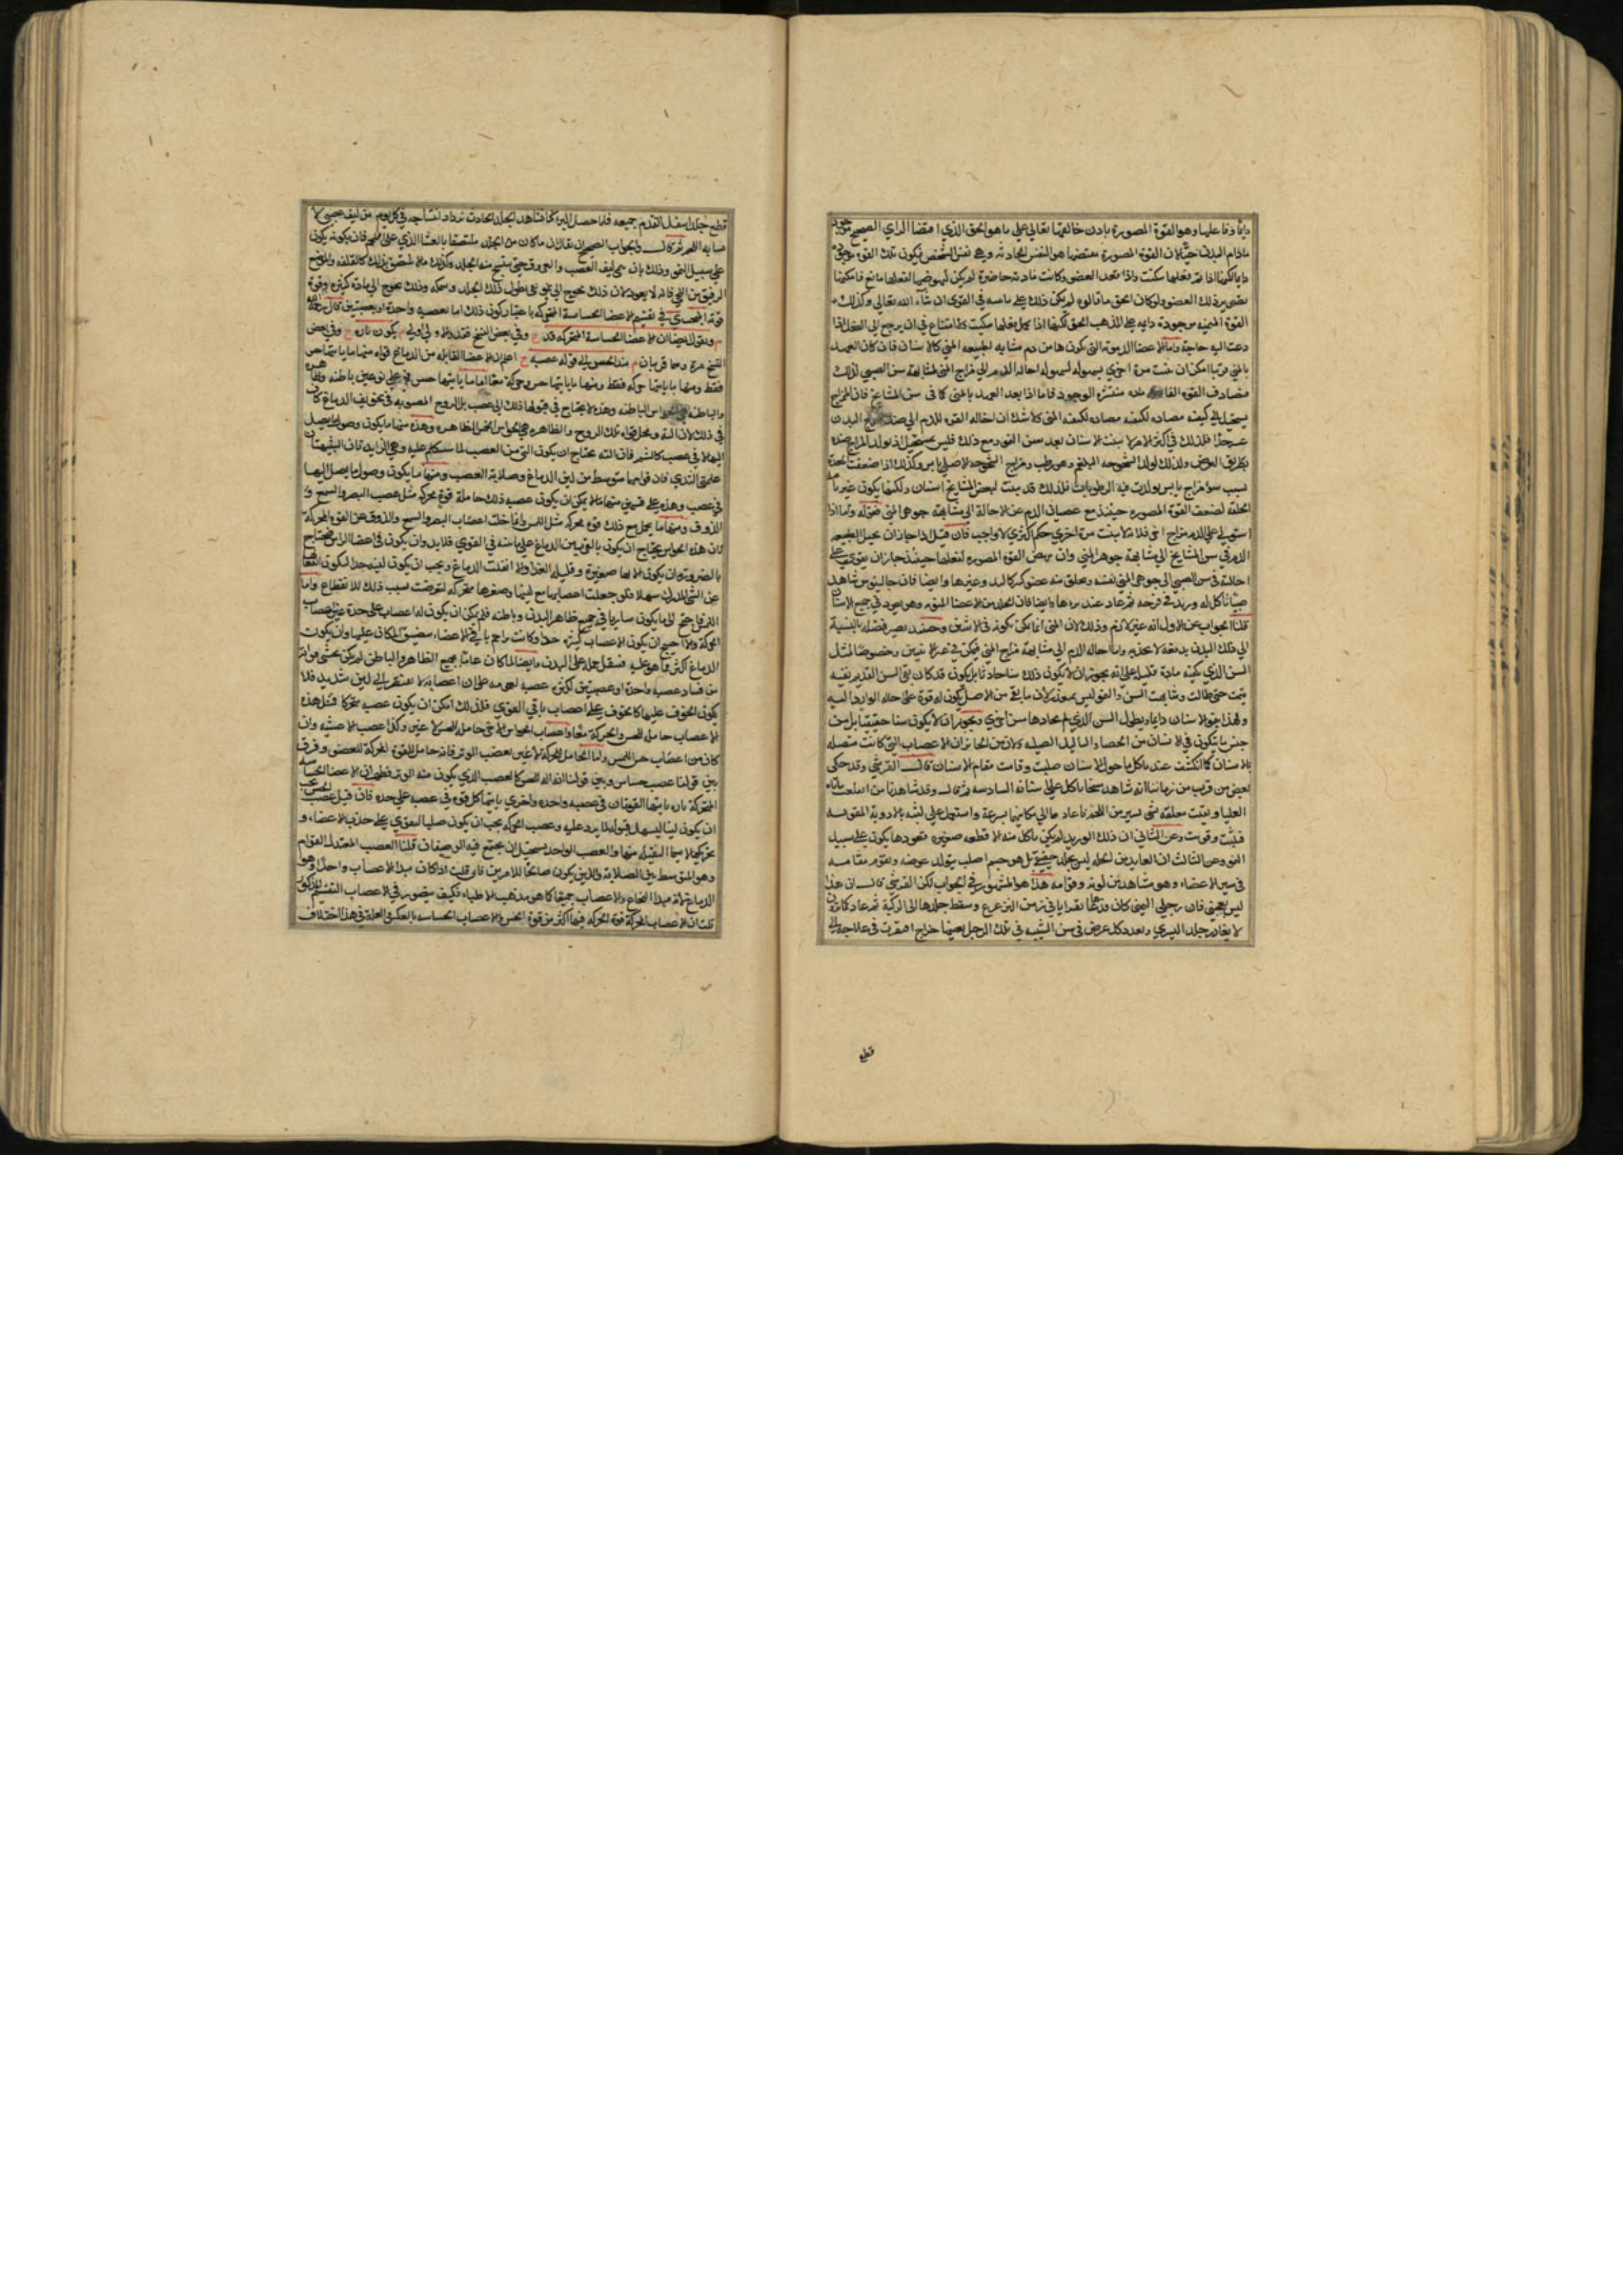 دايما وفاعلها وهو القوة المصورة باذن خالقها تعالى على ما هو الحق الذي اقتضاه الراي الصحيح
مادام البدن حيا لان القوة المصورة بعضها هو النفس الحادثة وهي نفس الشخص فيكون تلك القوة موجودة
دايما لكنها اذا تم فعلها سكنت واذا فقد العضو وكانت مادته حاضرة لم يكن لنهوضها لفعلها مانع
ذلك العضو ولو كان الحق ما قالوه لم يكن ذلك على ما سنبينه في القوى ان شاء الله تعالى وكذلك
القوة موجودة دايما على المذهب الحق لكنها اذا كمل فعلها سكنت ولا امتناع في ان يرجع الى الفعل اذا
دعت اليه حاجة واما الاعضا الدموية التي تكونها من دم مشابه لطبيعة المني كالاسنان فان كان العهد
بالمني قريبا امكن ان ينبت مرة اخرى لسهولة احالة الدم الى مزاج المني لمشابهة سن الصبي لذلك
فتصادف القوة مادة الوجود فاما اذا بعد العهد بالمني كما في سن المشايخ فان المزاج
يستحيل الى كيفية مضادة لكيفية المني ولا شك ان احالة القوة للدم الى ضد مزاج البدن
عسر جدا فلذلك في اكثر الامر لا ينبت الاسنان بعد سن النمو ومع ذلك فليس بمستحيل اذ تولد المزاج ضده
بطريق العرض ولذلك تولد الشيخوخة البلغم وهو رطب ومزاج الشيخوخة الاصلي يابس وكذلك اذا ضعفت المعدة
بسبب سوء مزاج يابس تولدت فيه الرطوبات فلذلك قد ينبت لبعض المشايخ اسنان ولكنها يكون غير تامة
الخلقة لضعف القوة المصورة حينئذ مع عصيان الدم عن الاحالة الى مشابهة جوهر المني واما اذا
استولى على الدم مزاج اخر فلا ثم لا ينبت مرة اخرى حكم اكثري لا واجب فان قيل اذا جاز ان يحيل الطبيعة
الدم في سن المشايخ الى مشابهة جوهر المني وان ينهض القوة المصورة لفعلها حينئذ جاز ان يقوى على
احالته في سن الصبي الى جوهر المني نفسه ويخلق منه عضو كبير كاليد وغيرها وايضا فان جالينوس شاهد
صبيا وريد في قرحة ثم عاد عند وايضا فان الجلد من الاعضا المنوية وهو يعود في جميع الاسنان
قلنا الجواب عن الاول انه غير لازم وذلك لان المني انما يمكن تكونه في الانثيين
الى ذلك البدن واما احالة الدم الى مشابهة مزاج المني فيمكن في غير الانثيين وخصوصا لمثل
السن الذي يكفيه مادة قليلة على انه يجوز ان لا يكون ذلك سنا حادثا بل يكون قد كان بقي السن القديم بقية
نبتت حتى طالت وشابهت السن والنمو ليس بمعوز لان ما بقي من الاصل يكون له قوة على احالة الوارد اليه
ولهذا ينمو الاسنان دايما ويطول السن الذي لم يحاذها سن اخرى ويجوز ان لا يكون سنا حقيقيا بل من
جنس ما يتكون في الانسان من الحصا والثآليل الصلبة ولان من الجايز ان الاعصاب التي كانت متصلة
بالاسنان كلما انكشفت عند تآكل ما حول الاسنان صلبت وقامت مقام الاسنان قال القرشي وقد حكي
بعض من قريب من زماننا انه شاهد شيخا تاكل على اسنانه السادسة ثم قال وقد شاهدنا من انقلعت ثناياه
العليا وبقيت معلقة بشيء يسير من اللحم فاعادها الى مكانها بسرعة واستعمل على لثته بالادوية المقوية
فثبتت وقويت وعن الثاني ان ذلك الوريد لم يكن تاكل منه الا قطعة صغيرة فعودها يكون على سبيل
النمو وعن الثالث ان العايد من الجلد ليس بجلد حقيقي بل هو جسم اصلب يتولد عوضه ويقوم مقامه
في ستر الاعضاء وهو مشاهد من لونه وقوامه هذا هو المشهور في الجواب لكن القرشي قال ان هذا
ليس يعجبني فان رجلي اليمنى كان وسقط جلدها الى الركبة ثم عاد كما كان
لا يغادر جلد اليسرى وبعد ذلك عرض في سن الشبيبة في تلك الرجل بعينها خراج افتقرت في علاجه الى
قطع
قطع جلد اسفل القدم جميعه فلما حصل البرء كنا نشاهد الجلد الحادث يزداد انتساجه في كل يوم من ليف عصبي لا
مشابه اللحم ثم قال والجواب الصحيح ان يقال ان ما كان من الجلد ملتصقا بالغشا الذي على اللحم فان تكونه يكون
على سبيل النمو وذلك بان ينمي ليف العصب والعروق حتى ينتسج منه الجلد وكذلك ما لا يلتصق بذلك كالقلفة والموضع
الرقيق من اللحي فانه لا يعود لان ذلك يحوج الى نمو في طول ذلك الجلد وسمكه وذلك يحوج الى مادة كثيرة وقوة
قوية البحث في تقسيم الاعضا الحساسة المتحركة باعتبار كون ذلك اما بعصبة واحدة او بعصبتين قال رحمه الله
ونقول ايضا ان الاعضا الحساسة المتحركة قد وفي بعض النسخ فقد والاولى اولى يكون تارة وفي بعض
النسخ مرة وهما قريبان مبدا الحس الى قوله عصبة اعلم ان الاعضا القابلة من الدماغ قواه منها ما ياتيها حس
فقط ومنها ما ياتيها حركة فقط ومنها ما ياتيها حس وحركة معا اما ما ياتيها حس فهو على نوعين باطنة وظاهرة
والباطنة الحواس الباطنة وهذه لا يحتاج في قبولها ذلك الى عصب بل الروح المصبوبة في تجويف الدماغ كاف
في ذلك لان آلته ومحل قواه تلك الروح والظاهرة هي الحواس الخمس الظاهرة وهذه منها ما يكون وصول ما يصل
اليها لا في عصب كالشم فان آلته يحتاج ان يكون الين من العصب لما ستكلم عليه وهي الزايدتان الشبيهتان
بحلمتي الثدي فان قوامهما متوسط من لين الدماغ وصلابة العصب ومنها ما يكون وصول ما يصل اليها
في عصب وهذه على قسمين منها ما لا يمكن ان يكون عصبه ذلك حاملة قوة محركة مثل عصب البصر والسمع و
الذوق ومنها ما يحمل مع ذلك قوة محركة مثل اللمس وانما خلت اعصاب البصر والسمع والذوق عن القوة المحركة
لان هذه الحواس يحتاج ان يكون بالقرب من الدماغ على ما نبينه في القوى فلا بد وان يكون في اعضا الراس فيحتاج
بالضرورة ان يكون الاتها صغيرة وقليلة الغذا والا اثقلت الدماغ ويجب ان يكون لينة جدا ليكون انفعالها
عن الشي المدرك سهلا فلو جعلت اعصابها مع لينها وصغرها محركة لتعرضت بسبب ذلك للانقطاع واما
اللمس فاحتيج الى ما يكون ساريا في جميع ظاهر البدن وباطنه فلم يمكن ان يكون له اعصاب على حدة غير اعصاب
الحركة والا احتيج ان يكون الاعصاب كثيرة جدا وكانت تزاحم باقي الاعضاء بتضييق المكان عليها وان يكون
الدماغ اكثر مما هو عليه فيثقل حمله على البدن وايضا لما كان عاما لجميع الظاهر والباطن لم يكن يخشى فواته
من فساد عصبة واحدة او عصبتين لكثرة عصبه لعمومه على ان اعصابه لا تفتقر الى لين شديد فلا
يكون الخوف عليها كالخوف على اعصاب باقي القوى فلذلك امكن ان يكون عصبه محركا فمثل هذه
الاعصاب حاملة للحس والحركة معا واعصاب الحواس الاخر حاملة للحس لا غير وكذا عصب الاغشية وان
كان من اعصاب حس اللمس واما الحامل للحركة لا غير فعصب الوتر فانه حامل للقوة المحركة للعضو وفرق
بين قولنا عصب حساس وبين قولنا انه آلة للحس كالعصب الذي يكون منه الوتر فظهر ان الاعضا الحساسة
المتحركة تارة ياتيها القوتان في عصبة واحدة واخرى ياتيها كل قوة في عصبة على حدة فان قيل عصب الحس يجب
ان يكون لينا ليسهل قبوله لما يرد عليه وعصب الحركة يجب ان يكون صلبا ليقوى على جذب الاعضاء و
تحريكها لا سيما الثقيلة منها والعصب الواحد يستحيل ان يجتمع فيه الوصفان قلنا العصب المعتدل القوام
وهو المتوسط بين الصلابة واللين يكون صالحا للامرين فان قلت اذا كان مبدا الاعصاب واحدا وهو
الدماغ لانه مبدا النخاع والاعصاب جميعا كما هو مذهب الاطباء فكيف يتصور في الاعصاب التقسيم المذكور
قلت ان الاعصاب المحركة قوة الحركة فيها اكثر من قوة الحس والاعصاب الحساسة بالعكس في العلة في هذا الاختلاف